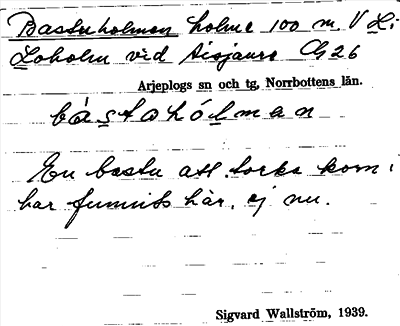 Bastuholmen holme 100 m. V Li
Loholm vid Aisjaure G 26
Arjeplogs sn och tg, Norrbottens län.
bástohólman
En bastu att torka korn i
har funnits här, ej nu.
Sigvard Wallström, 1939.